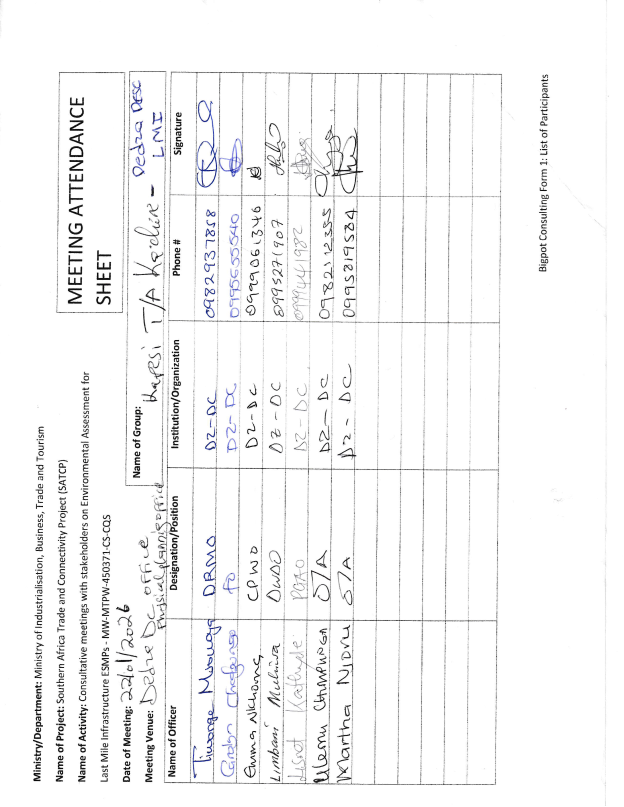 Ministry/Department: Ministry of Industrialisation, Business, Trade and Tourism
Name of Project: Southern Africa Trade and Connectivity Project (SATCP)
Name of Activity: Consultative meetings with stakeholders on Environmental Assessment for
Last Mile Infrastructure ESMPs - MW-MTPW-450371-CS-CQS
MEETING ATTENDANCE
SHEET
Date of Meeting: 22/01/2026
Meeting Venue: Dedza DC office
Physical planning office
Name of Group: T/A Kachere - Dedza DESC
LMI
Name of Officer Designation/Position Institution/Organization Phone # Signature
DRMO DZ-DC 0982937858
FO DZ-DC 0995655540
Emma Nkhoma CPWO DZ-DC 0999061346
Limbani DWDO DZ-DC 0995271907
DZ-DC 0999441982
Ulemu Chimphunga O/A DZ-DC 0982112355
Martha Njovu O/A DZ-DC 0995819584
Bigpot Consulting Form 1: List of Participants